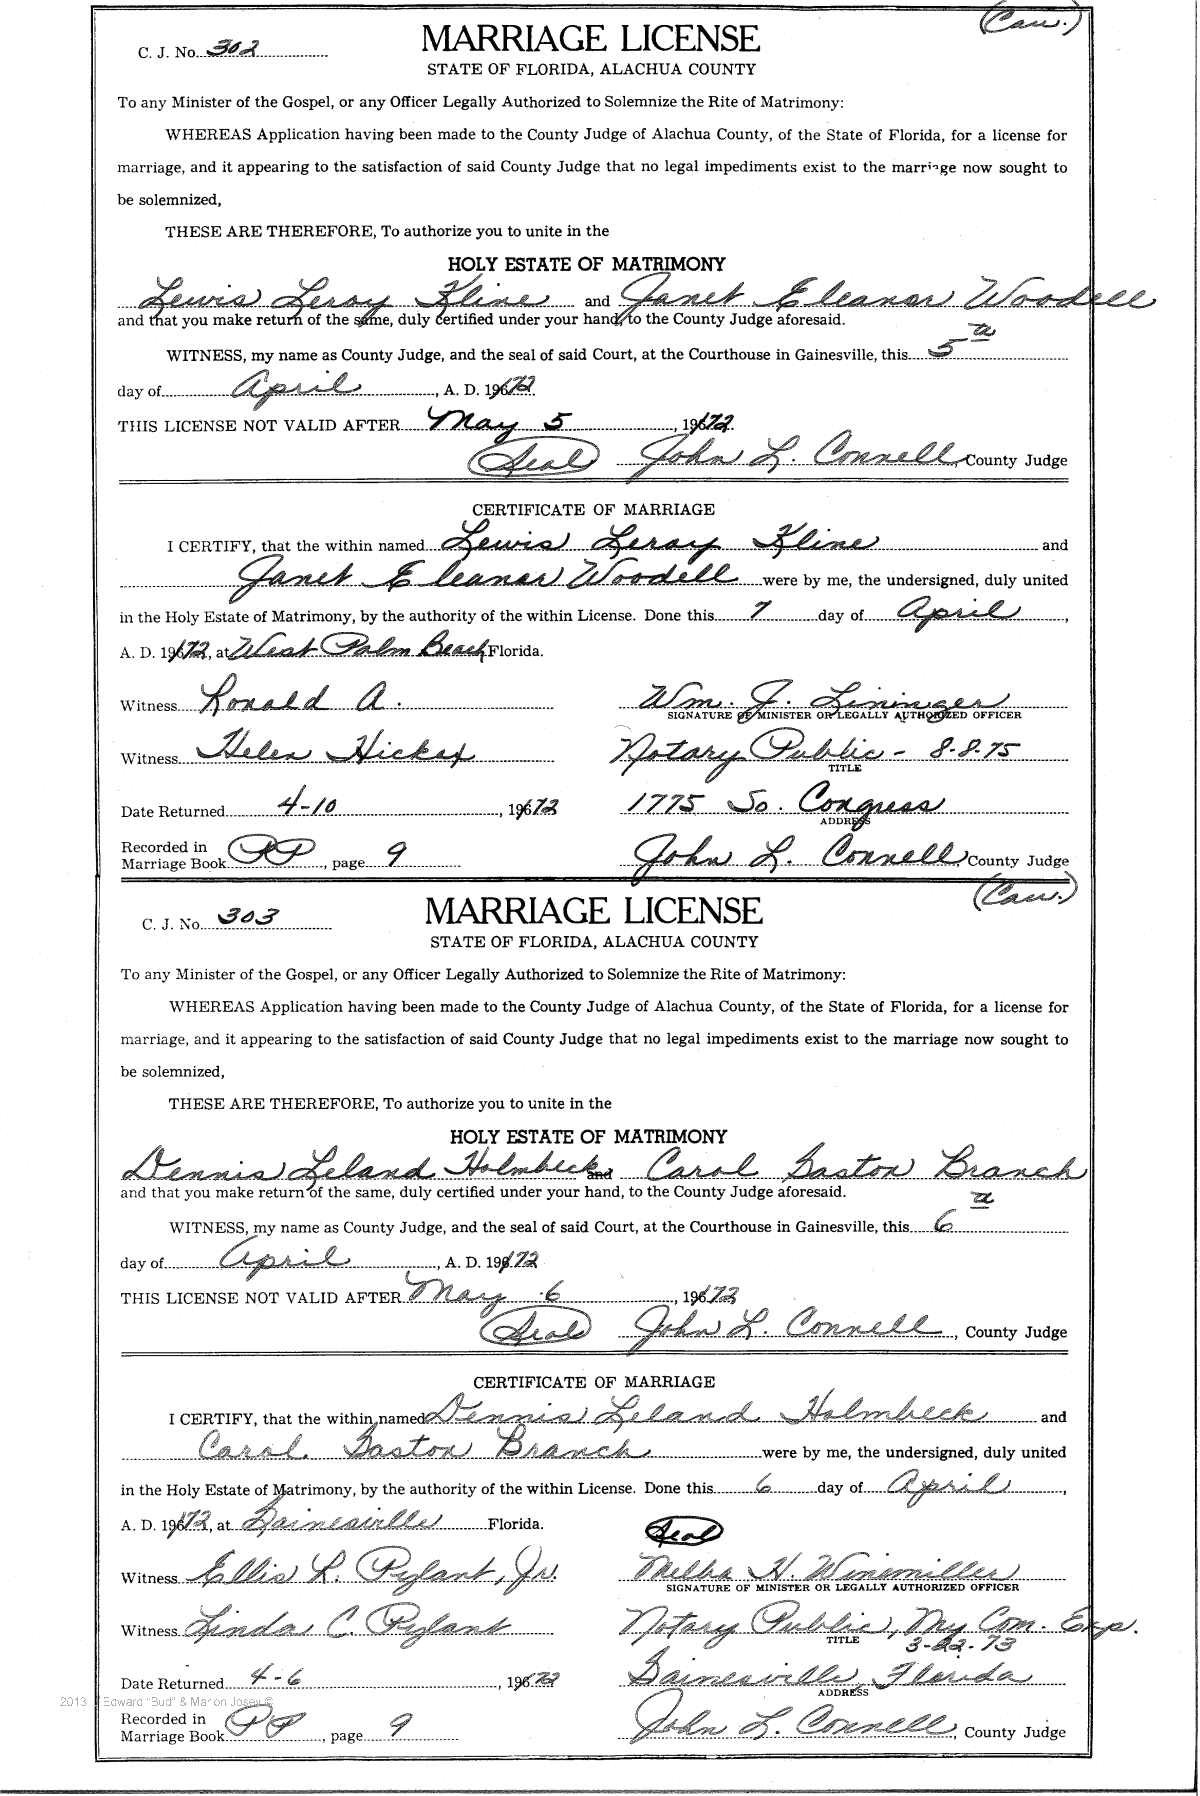 (Cau.)
C. J. No. 302
MARRIAGE LICENSE
STATE OF FLORIDA, ALACHUA COUNTY
To any Minister of the Gospel, or any Officer Legally Authorized to Solemnize the Rite of Matrimony:
WHEREAS Application having been made to the County Judge of Alachua County, of the State of Florida, for a license for
marriage, and it appearing to the satisfaction of said County Judge that no legal impediments exist to the marriage now sought to
be solemnized,
THESE ARE THEREFORE, To authorize you to unite in the
HOLY ESTATE OF MATRIMONY
Lewis Leroy Kline and Janet Eleanor Woodell
and that you make return of the same, duly certified under your hand, to the County Judge aforesaid.
WITNESS, my name as County Judge, and the seal of said Court, at the Courthouse in Gainesville, this 5th
day of April, A. D. 1972
THIS LICENSE NOT VALID AFTER May 5, 1972.
(Seal) John L. Connell, County Judge
CERTIFICATE OF MARRIAGE
I CERTIFY, that the within named Lewis Leroy Kline and
Janet Eleanor Woodell were by me, the undersigned, duly united
in the Holy Estate of Matrimony, by the authority of the within License. Done this 7 day of April,
A. D. 1972, at West Palm Beach, Florida.
Witness Ronald A. Wm. J. Lininger
SIGNATURE OF MINISTER OR LEGALLY AUTHORIZED OFFICER
Witness Helen Hickox Notary Public - 8-8-75
TITLE
Date Returned 4-10, 1972 1775 So. Congress
ADDRESS
Recorded in
Marriage Book PP, page 9 John L. Connell, County Judge
(Cau.)
C. J. No. 303
MARRIAGE LICENSE
STATE OF FLORIDA, ALACHUA COUNTY
To any Minister of the Gospel, or any Officer Legally Authorized to Solemnize the Rite of Matrimony:
WHEREAS Application having been made to the County Judge of Alachua County, of the State of Florida, for a license for
marriage, and it appearing to the satisfaction of said County Judge that no legal impediments exist to the marriage now sought to
be solemnized,
THESE ARE THEREFORE, To authorize you to unite in the
HOLY ESTATE OF MATRIMONY
Dennis Leland Holmbeck and Carol Gaston Branch
and that you make return of the same, duly certified under your hand, to the County Judge aforesaid.
WITNESS, my name as County Judge, and the seal of said Court, at the Courthouse in Gainesville, this 6th
day of April, A. D. 1972
THIS LICENSE NOT VALID AFTER May 6, 1972
(Seal) John L. Connell, County Judge
CERTIFICATE OF MARRIAGE
I CERTIFY, that the within named Dennis Leland Holmbeck and
Carol Gaston Branch were by me, the undersigned, duly united
in the Holy Estate of Matrimony, by the authority of the within License. Done this 6 day of April,
A. D. 1972, at Gainesville Florida.
(Seal)
Witness Ellis L. Pylant, Jr. Melba H. Winemiller
SIGNATURE OF MINISTER OR LEGALLY AUTHORIZED OFFICER
Witness Linda C. Pylant Notary Public, My Com. Exp.
TITLE 3-22-73
Date Returned 4-6, 1972 Gainesville, Florida
ADDRESS
2013 Edward "Bud" & Marion Josey ©
Recorded in
Marriage Book PP, page 9 John L. Connell, County Judge